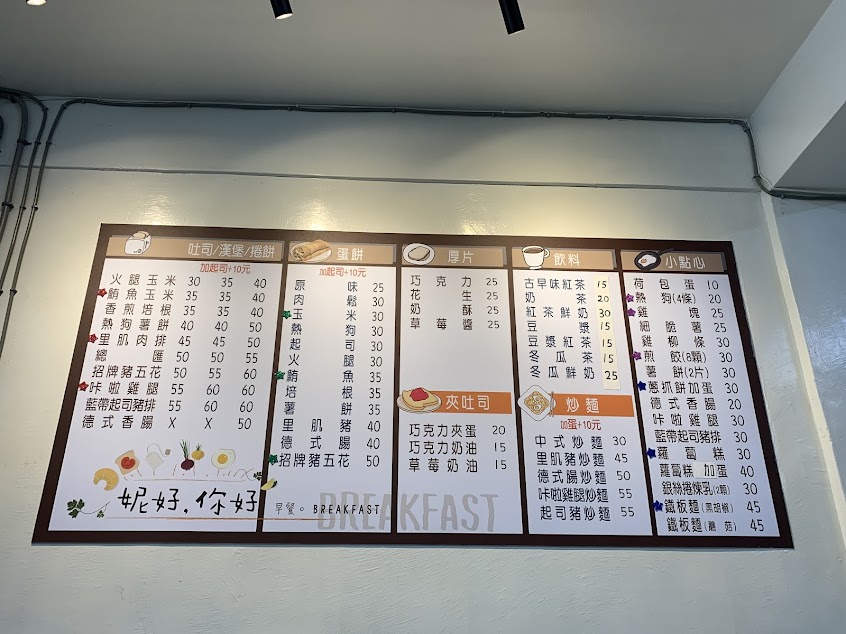 吐司/漢堡/捲餅
加起司+10元
火腿玉米 30 35 40
鮪魚玉米 35 35 40
香煎培根 35 35 40
熱狗薯餅 40 40 50
里肌肉排 45 45 50
總匯 50 50 55
招牌豬五花 50 55 60
咔啦雞腿 55 60 60
藍帶起司豬排 55 60 60
德式香腸 X X 50
妮好,你好
早餐。BREAKFAST
BREAKFAST
蛋餅
加起司+10元
原味 25
肉鬆 30
玉米 30
熱狗 30
起司 30
火腿 30
鮪魚 35
培根 35
薯餅 35
里肌豬 40
德式腸 40
招牌豬五花 50
厚片
巧克力 25
花生 25
奶酥 25
草莓醬 25
夾吐司
巧克力夾蛋 20
巧克力奶油 15
草莓奶油 15
飲料
古早味紅茶 15
奶茶 20
紅茶鮮奶 30
豆漿 15
豆漿紅茶 15
冬瓜茶 15
冬瓜鮮奶 25
炒麵
加蛋+10元
中式炒麵 30
里肌豬炒麵 45
德式腸炒麵 50
咔啦雞腿炒麵 55
起司豬炒麵 55
小點心
荷包蛋 10
熱狗(4條) 20
雞塊 25
細脆薯 25
雞柳條 30
煎餃(8顆) 30
薯餅(2片) 30
蔥抓餅加蛋 30
德式香腸 20
咔啦雞腿 30
藍帶起司豬排 30
蘿蔔糕 30
蘿蔔糕加蛋 40
銀絲捲煉乳(2顆) 30
鐵板麵(黑胡椒) 45
鐵板麵(蘑菇) 45